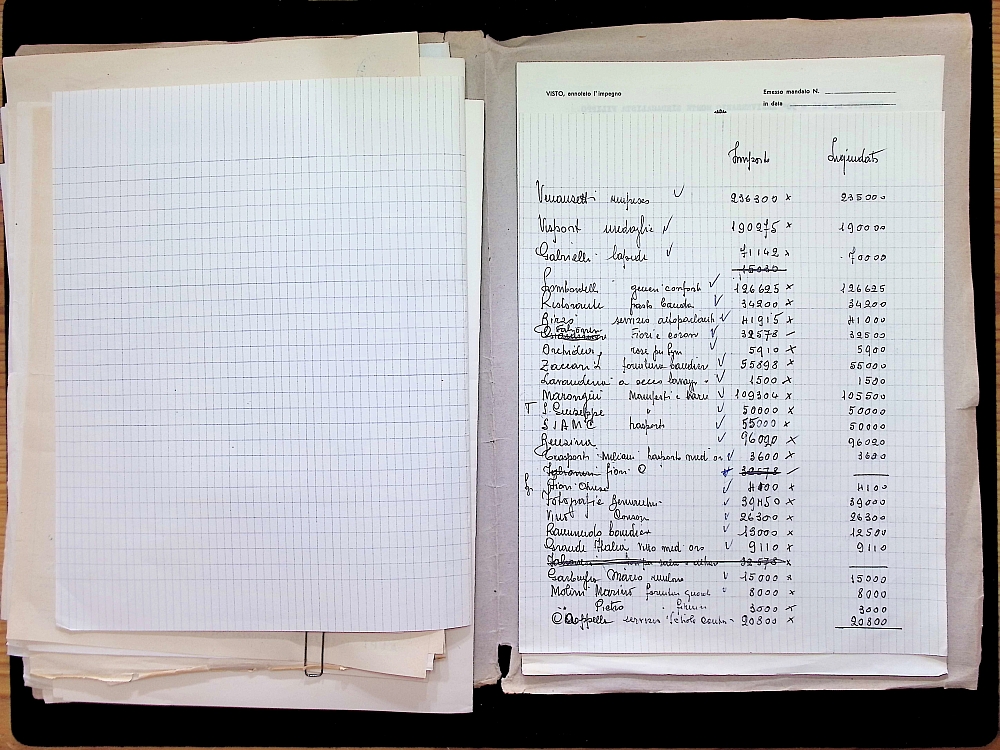 VISTO, annotato l'impegno Emesso mandato N.
in data
Importo Liquidato
Venansetti rinfresco 236300 x 235000
Visport medaglie 190275 x 190000
Gabrielli lapide 71142 x 70000
15030
Lombardelli generi conforto 126625 x 126625
Ristorante pasto banda 34200 x 34200
Birzo servizio altoparlanti 41915 x 41000
Fabrioni Fiori e corone 32573 32500
Orchidea, rose per 5910 x 5900
Zaccari fornitura bandiere 55898 x 55000
Lavanderia a secco lavagg. 1500 x 1500
Marongiu Manifesti e varie 109304 x 105500
T S. Giuseppe " 50000 x 50000
SIAMC trasporti 55000 x 50000
Benzina 96020 x 96020
Trasporti Miliani trasporto med oro 3600 x 3600
fiori 32573
Fiori 4100 x 4100
Fotografie 39450 x 39000
Vino 26300 x 26300
Ranunciolo bandiere 13000 x 12500
Grande Italia Vitto med oro 9110 x 9110
32573 x
Garbuglio Mario 15000 x 15000
Molini Marino 8000 x 8000
" Pietro 3000 x 3000
Cappelli servizio 20800 x 20800